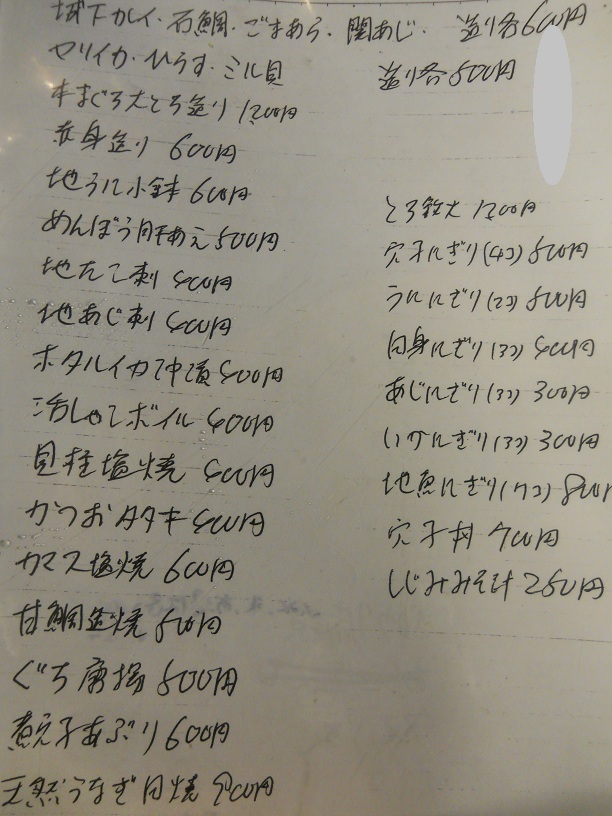 城下カレイ・石鯛・ごまあら・関あじ・ 造り各600円
ヤリイカ・ひらす・ミル貝 造り各500円
本まぐろ大とろ造り 1,200円
赤身造り 600円
地うに小鉢 600円
めんぼう肝あえ 500円
地たこ刺 400円
地あじ刺 400円
ホタルイカ沖漬 400円
活しゃこボイル 400円
貝柱塩焼 400円
かつおタタキ 400円
カマス塩焼 600円
甘鯛塩焼 500円
ぐち唐揚 500円
煮穴子あぶり 600円
天然うなぎ白焼 900円
とろ鉄火 1,200円
穴子にぎり(4コ) 500円
うににぎり(2コ) 500円
白身にぎり(3コ) 400円
あじにぎり(3コ) 300円
いかにぎり(3コ) 300円
地魚にぎり(7コ) 800円
穴子丼 700円
しじみみそ汁 250円